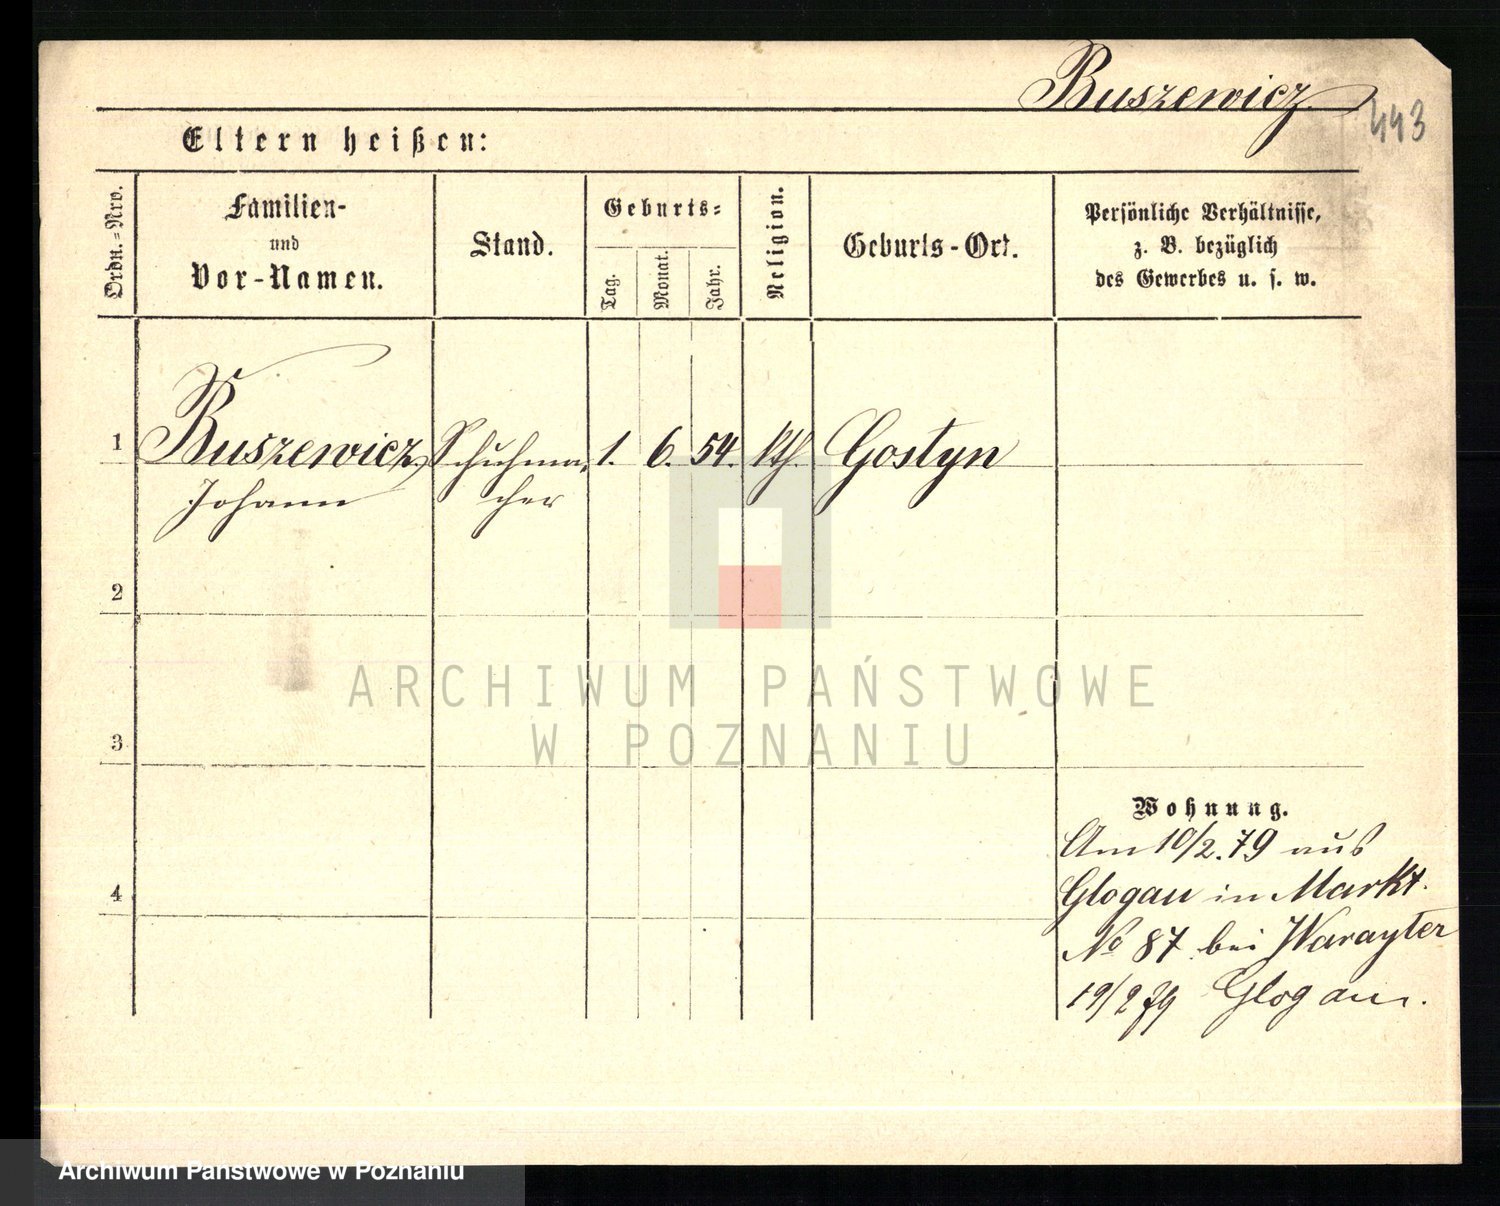 Buszewicz
443
Eltern heißen:
Ordn.=Nro.
Familien-
und
Vor-Namen.
Stand.
Geburts=
Tag.
Monat.
Jahr.
Religion.
Geburts-Ort.
Persönliche Verhältnisse,
z. B. bezüglich
des Gewerbes u. s. w.
1 Buszewicz, Schuhma= 1. 6. 54. kth. Gostyn
Johann cher
2
3
4
ARCHIWUM PAŃSTWOWE
W POZNANIU
Wohnung.
Am 10/2. 79 aus
Glogau in Markt.
No 87. bei
19/2 79 Glogau.
Archiwum Państwowe w Poznaniu